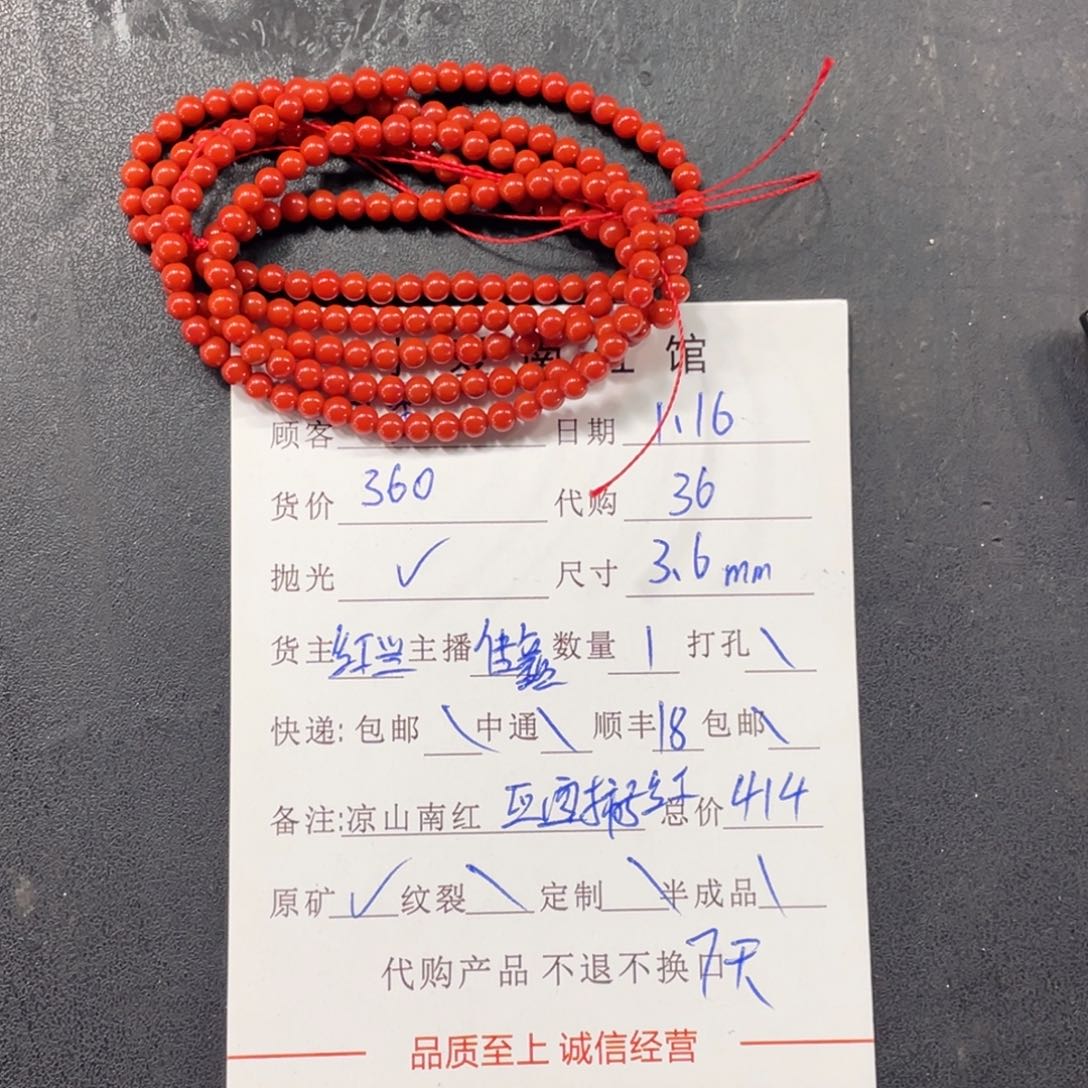 南红馆
顾客 日期 1.16
货价 360 代购 36
抛光 ✓ 尺寸 3.6mm
货主 红兴 主播 数量 1 打孔 \
快递: 包邮 \ 中通 \ 顺丰 18 包邮 \
备注: 凉山南红 总价 414
原矿 ✓ 纹裂 \ 定制 \ 半成品 \
代购产品 不退不换 口 7天
品质至上 诚信经营